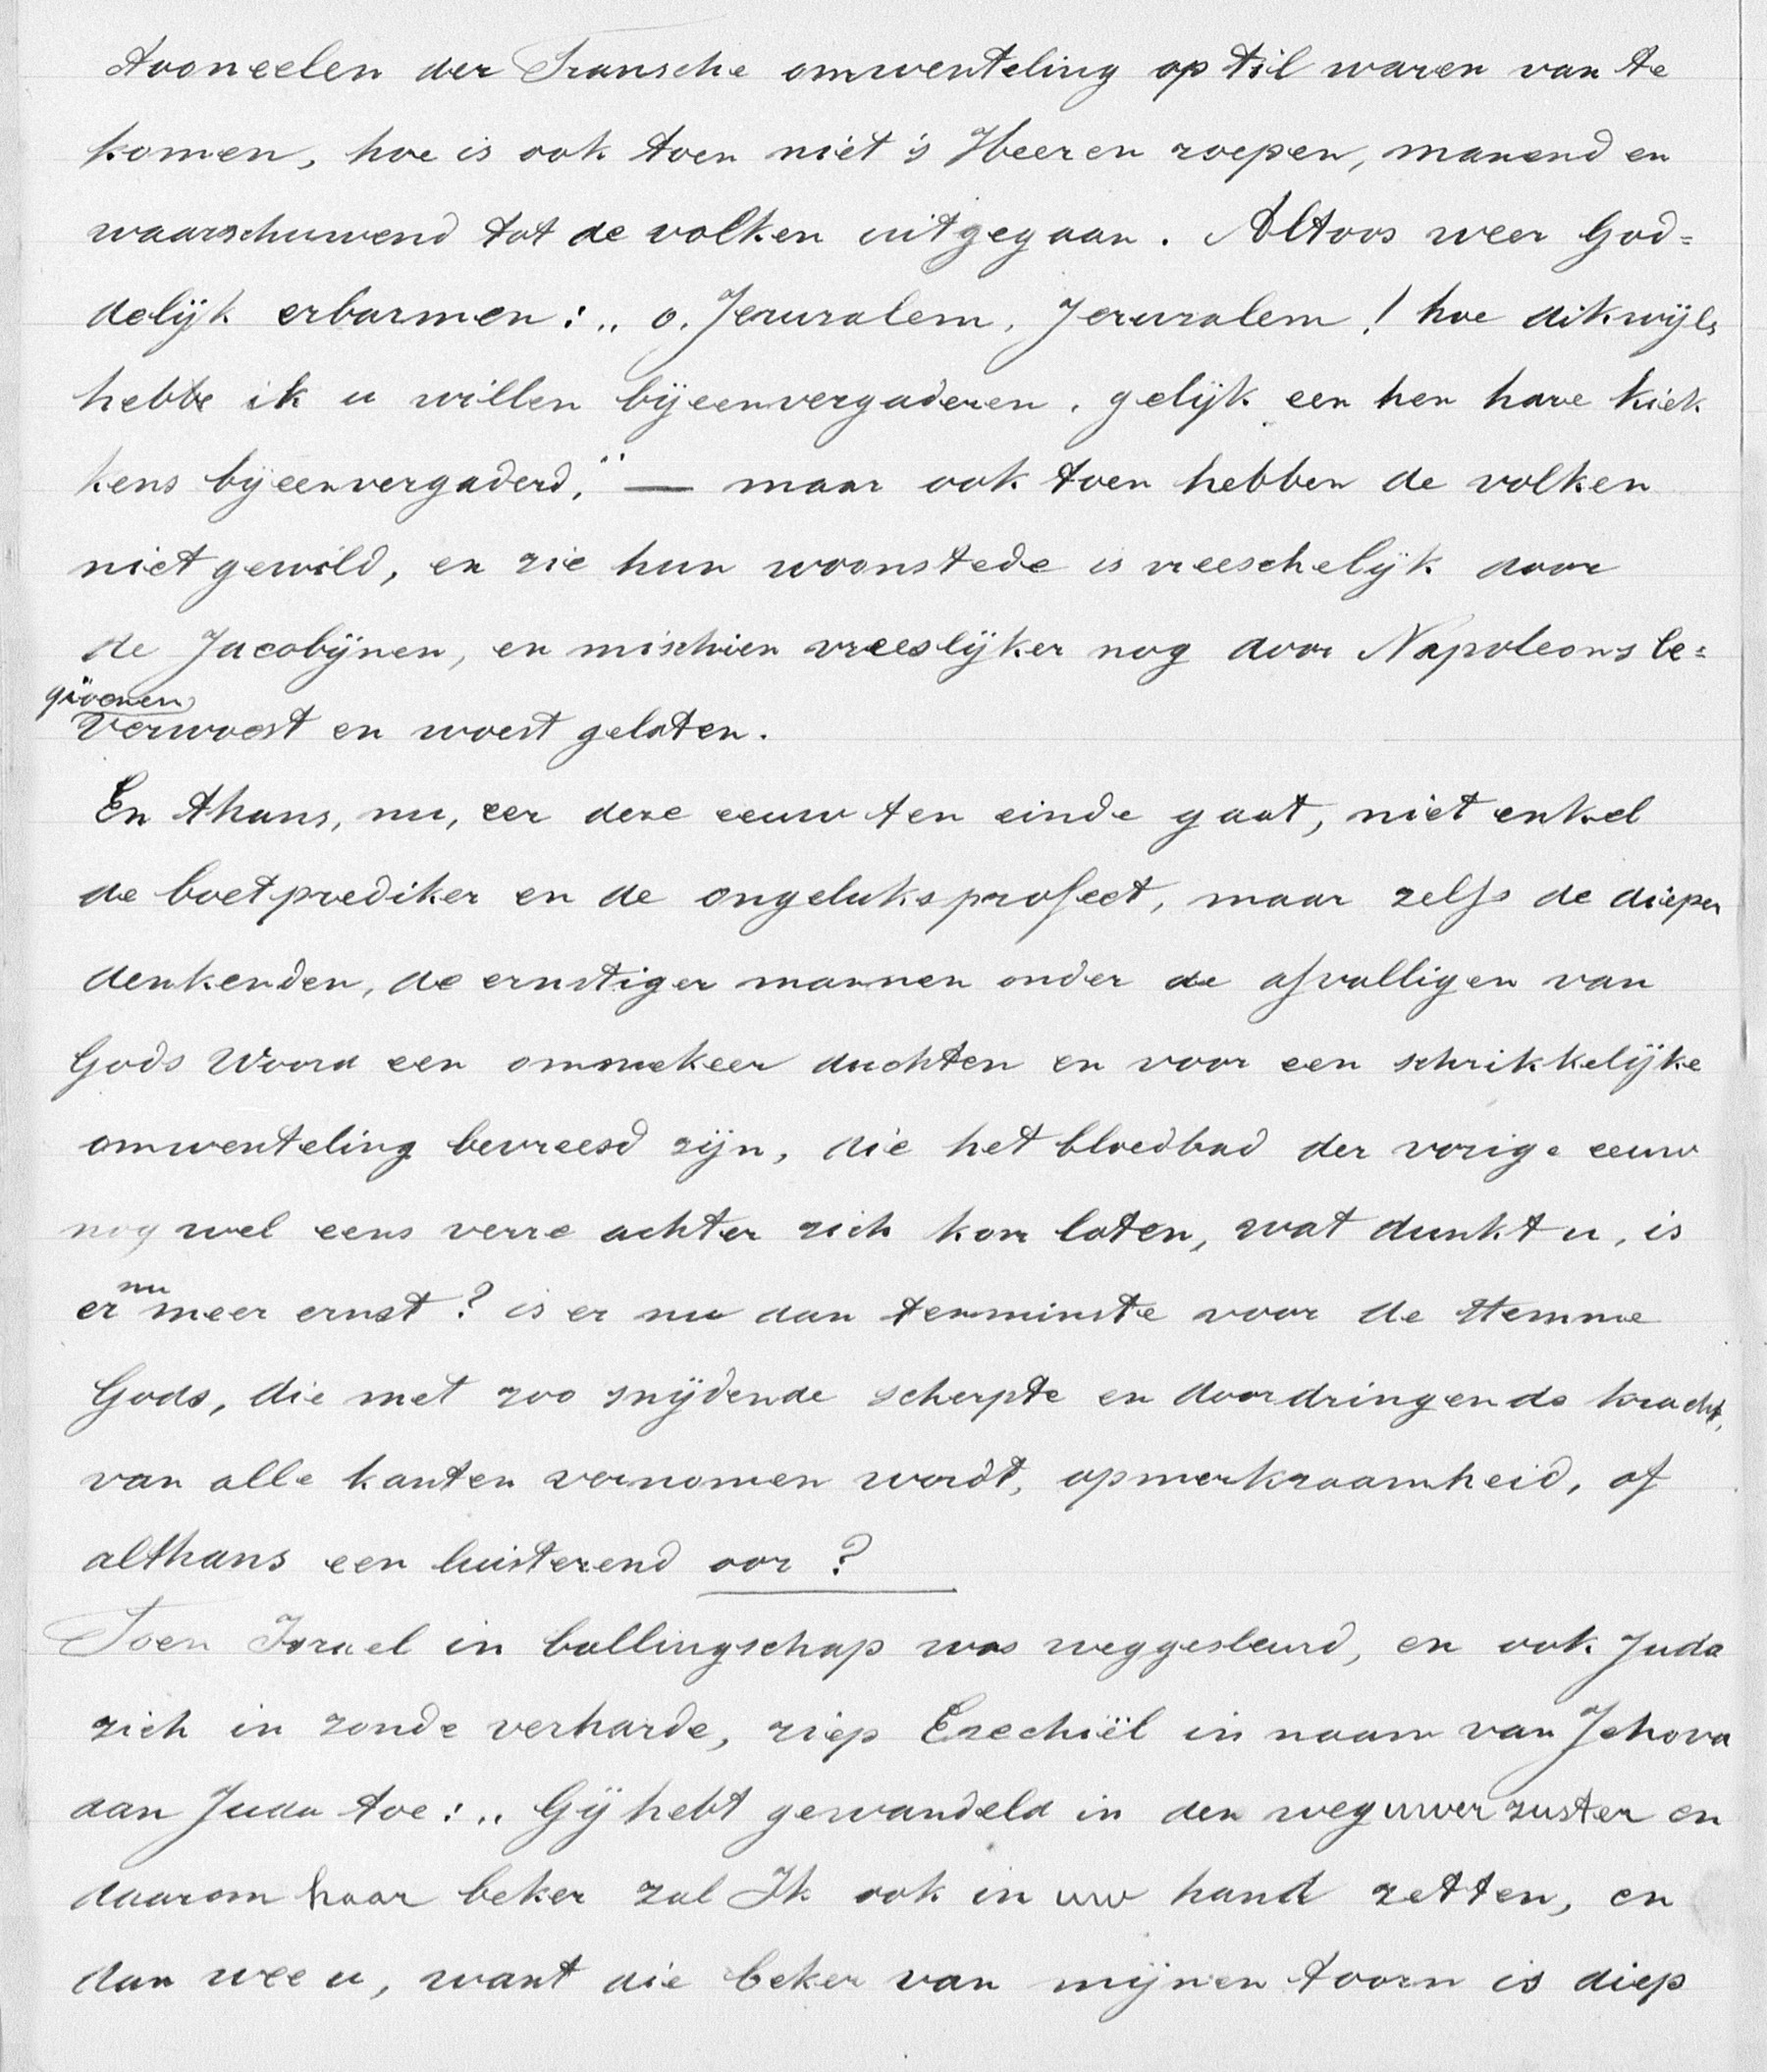 tooneelen der Fransche omwenteling op til waren van te
komen, hoe is ook toen niet 's Heeren roepen, manend en
waarschuwend tot de volken uitgegaan. Altoos weer God=
delijk erbarmen: „ o, Jeruzalem, Jeruzalem! hoe dikwijls
hebbe ik u willen bijeenvergaderen, gelijk een hen hare kiek
kens bijeenvergaderd," — maar ook toen hebben de volken
niet gewild, en zie hun woonstede is vreeschelijk door
de Jacobijnen, en mischien vreeslijker nog door Napoleons le=
gioenen
verwoest en woest gelaten.
En thans, nu, eer deze eeuw ten einde gaat, niet enkel
de boetprediker en de ongeluksprofeet, maar zelfs de dieper
denkenden, de ernstiger mannen onder de afvalligen van
Gods Woord een ommekeer duchten en voor een schrikkelijke
omwenteling bevreesd zijn, die het bloedbad der vorige eeuw
nog wel eens verre achter zich kon laten, wat dunkt u, is
er nu meer ernst? is er nu dan tenminste voor de stemme
Gods, die met zoo snijdende scherpte en doordringende kracht,
van alle kanten vernomen wordt, opmerkzaamheid, of
althans een luisterend oor?
Toen Israel in ballingschap was weggesleurd, en ook Juda
zich in zonde verharde, riep Ezechiël in naam van Jehova
aan Juda toe: „ Gij hebt gewandeld in den weg uwer zuster en
daarom haar beker zal Ik ook in uw hand zetten, en
dan wee u, want die beker van mijnen toorn is diep